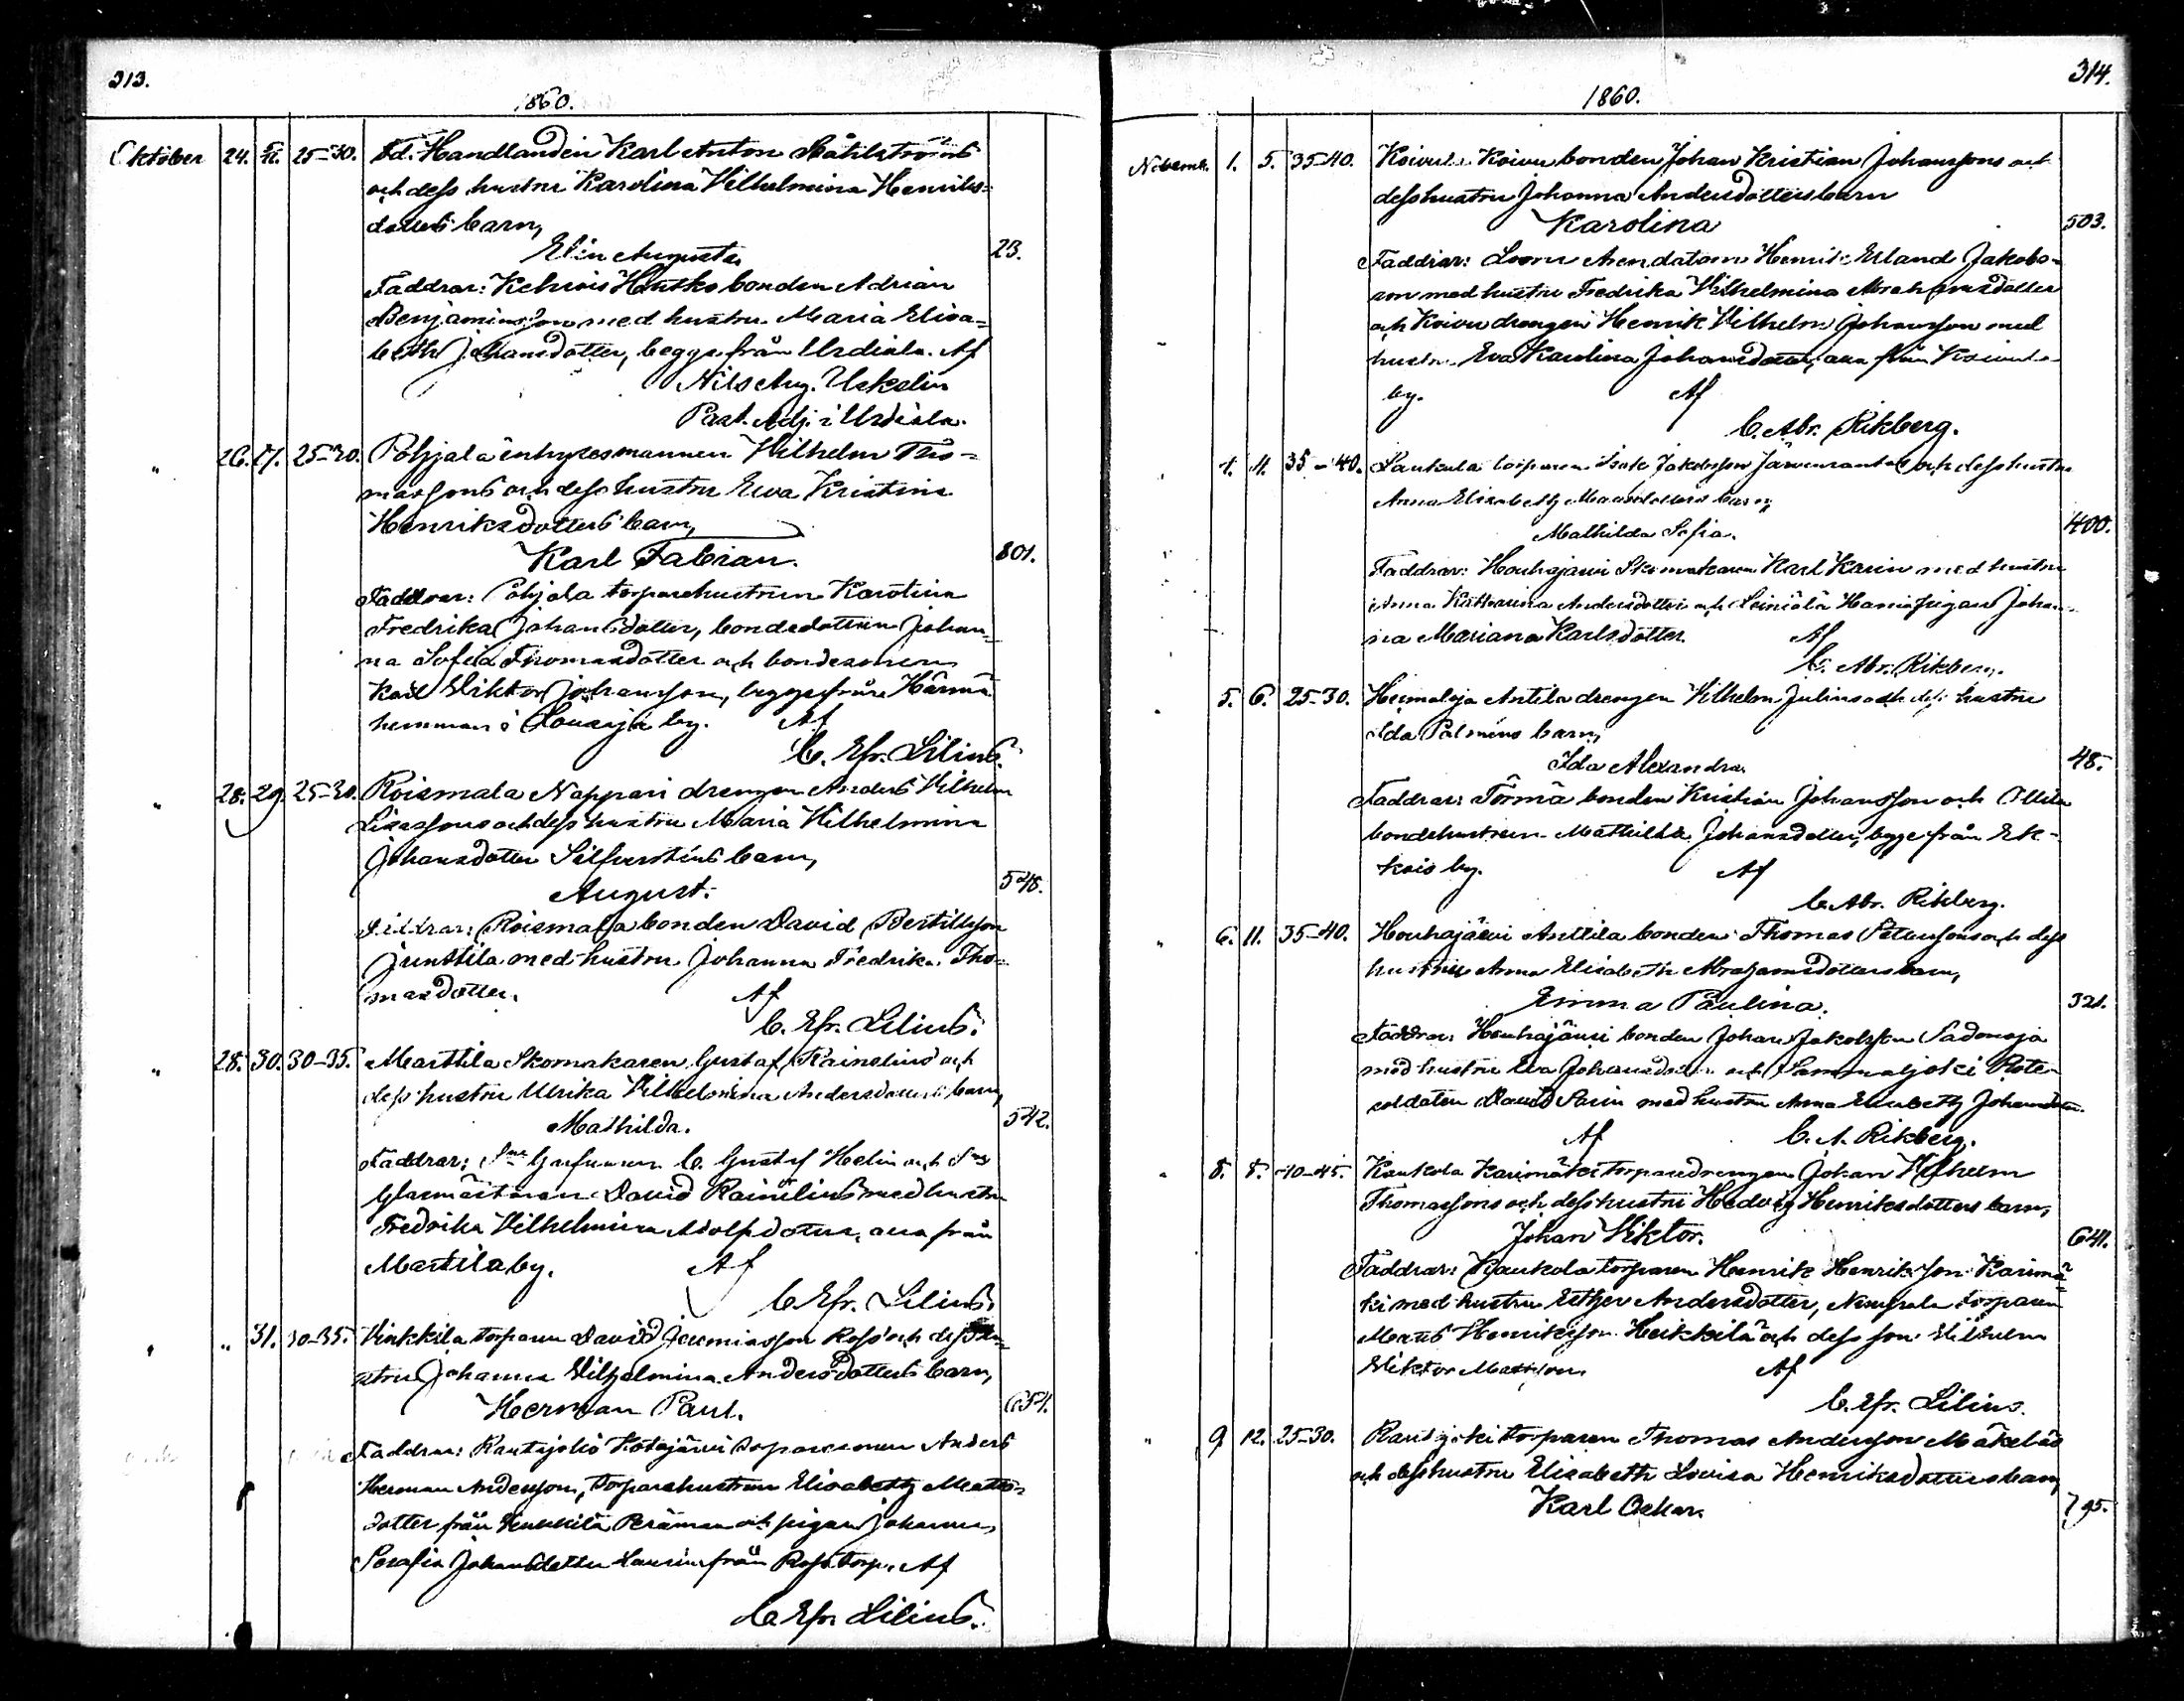 313.
1860.
Oktober 24. 25-30. Fd. Handlanden Karl Anton Ståhlströms
och dess hustru Karolina Vilhelmina Henriks=
dotters barn,
Elin Augusta 23.
Faddrar: Kehrois Hautko bonden Adrian
Benjaminsson med hustru Maria Elisa=
beth Johansdotter, begge från Urdiala. Af
Nils Aug. Uskelin
Past. Adj. i Urdiala.
" 26. 27. 25-30. Pohjala inhysesmannen Vilhelm Tho=
massons och dess hustru Eva Kristina
Henriksdotters barn,
Karl Fabian. 801.
Faddrar: Pohjala torparehustrun Karolina
Fredrika Johansdotter, bondedottren Johan=
na Sofia Thomasdotter och bondesonen
Karl Viktor Johansson, begge från Härmä
hemman i Kouarja by. Af
C. Efr. Lilius.
" 28. 29. 25-30. Roismala Nappari drengen Anders Vilhelm
och dess hustru Maria Vilhelmina
Johansdotter Silfversténs barn,
August. 548.
Faddrar: Roismala bonden David Bertilsson
Junttila med hustru Johanna Fredrika Tho=
masdotter. Af
C. Efr. Lilius.
" 28. 30. 30-35. Marttila Skomakaren Gustaf Rainelius och
dess hustru Ulrika Vilhelmina Andersdotters barn,
Mathilda. 542.
Faddrar: C. Gustaf Helin och
Glasmästaren David Rainelius med hustru
Fredrika Vilhelmina Adolfsdotter, alla från
Marttila by. Af
C. Efr. Lilius.
" " 31. 30-35. Kinkkila torparen David Jeremiasson Rosö och dess hu
stru Johanna Vilhelmina Andersdotters barn,
Herman Paul. 654.
Faddrar: Rautajoki Kotajärvi torparesonen Anders
Herman Andersson, torparehustrun Elisabeth Matts=
dotter från Kinkkilä och pigan Johanna
Serafia Johansdotter från torp. Af
C. Efr. Lilius.
314.
1860.
Novemb. 1. 5. 35-40. Koivula Koivu bonden Johan Kristian Johanssons och
dess hustru Johanna Andersdotters barn
Karolina 503.
Faddrar: Arendatorn Henrik Erland Jakobs=
son med hustru Fredrika Vilhelmina Abrahamsdotter
och Koivu drengen Henrik Vilhelm Johansson med
hustru Eva Karolina Johansdotter, alla från Koivula
by. Af
C. Abr. Rikberg.
1. 11. 35-40. Kaukola torparen Isak Jakobsson Järvenranta och dess hustru
Anna Elisabeth barn,
Mathilda Sofia. 400.
Faddrar: Houhajärvi Skomakaren Karl Karin med hustru
Anna Katharina Andersdotter och Leiniälä pigan Johan
na Mariana Karlsdotter. Af
C. Abr. Rikberg.
5. 6. 25-30. Heimaloja Antila drengen Vilhelm Julius och dess hustru
Ida Palmens barn,
Ida Alexandra. 48.
Faddrar: Törmä bonden Kristian Johansson och Ollila
bondehustrun Mathilda Johansdotter, begge från Ek=
kois by. Af
C. Abr. Rikberg.
" 6. 11. 35-40. Houhajärvi Anttila bonden Thomas Peterssons och dess
hustrus Anna Elisabeth Abrahamsdotters barn,
Emma Paulina. 321.
Faddrar: Houhajärvi bonden Johan Jakobsson Sadenoja
med hustru Eva Johansdotter och Sammaljoki Rote=
soldaten David Sarin med hustru Anna Elisabeth Johansdotter.
Af C. A. Rikberg.
8. 8. 40-45. Kaukola Karimäki torparedrengen Johan Vilhelm
Thomassons och dess hustru Hedvig Henriksdotters barn,
Johan Viktor. 641.
Faddrar: Kaukola torparen Henrik Henriksson Karimä=
ki med hustru Esther Andersdotter, torparen
Matts Henriksson Heikkilä och dess son Vilhelm
Viktor Mattsson. Af
C. Efr. Lilius.
" 9 12. 25-30. Rautajoki torparen Thomas Andersson Mäkeläs
och dess hustru Elisabeth Lovisa Henriksdotters barn,
Karl Oskar. 795.